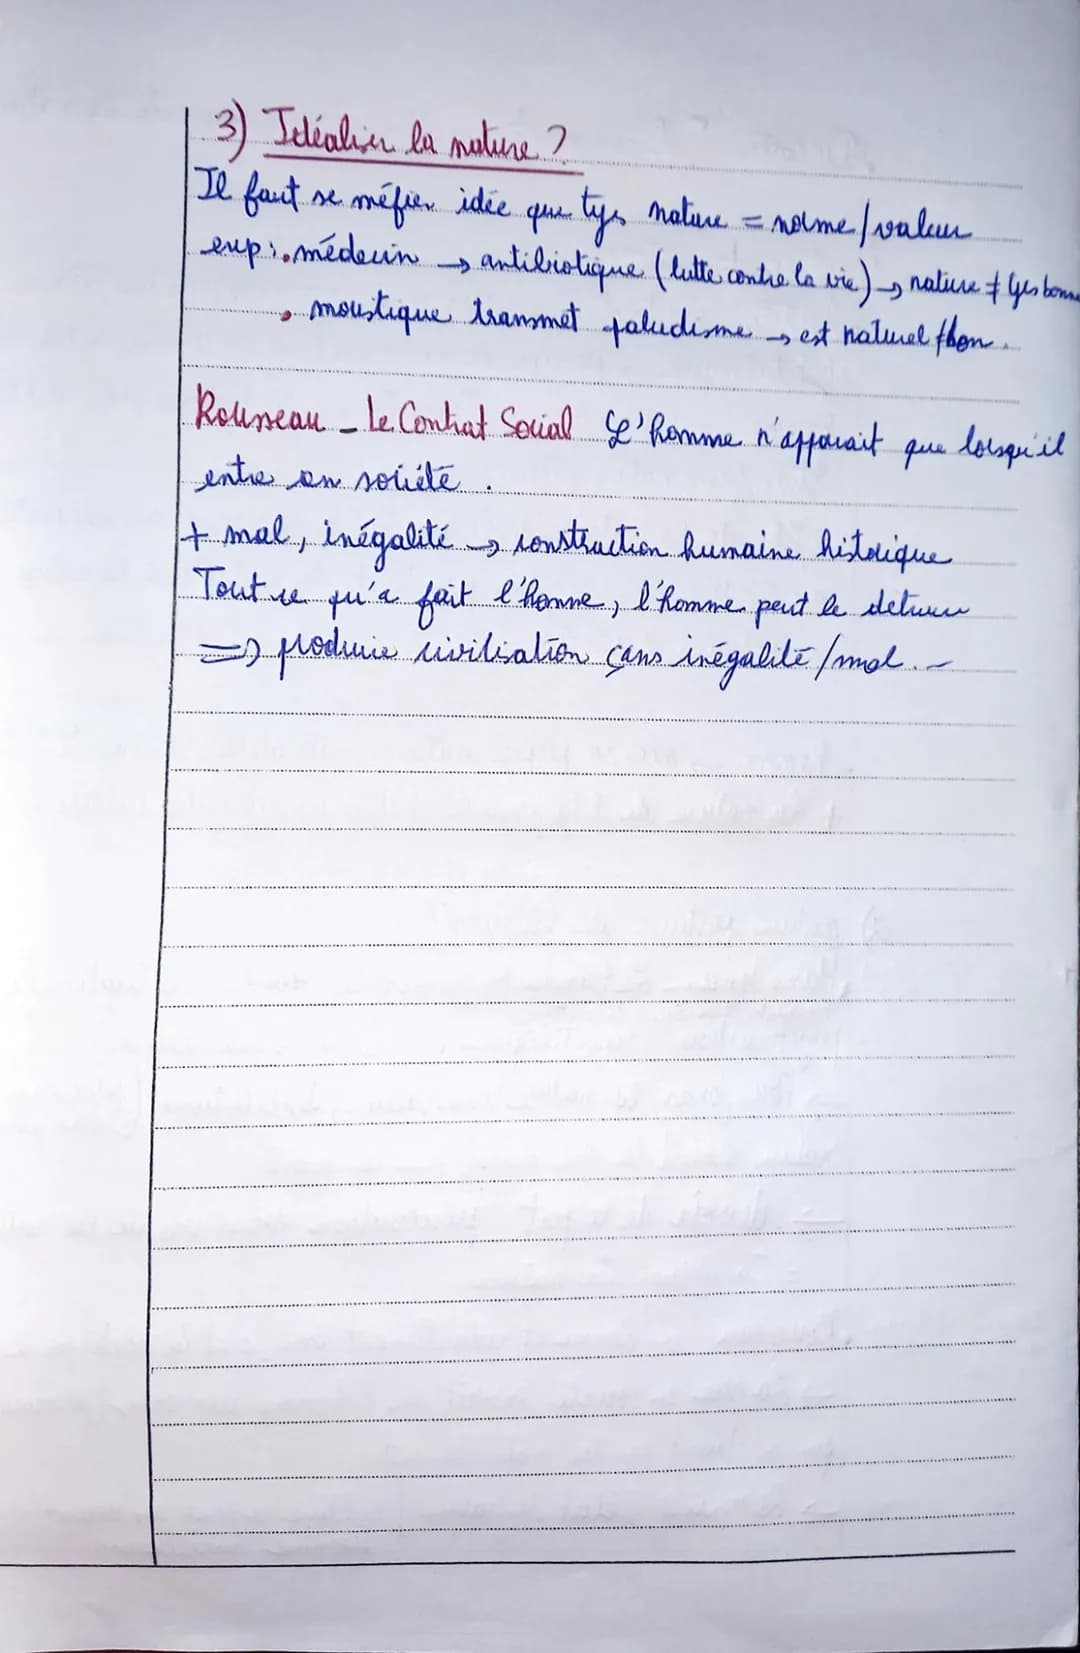 3) Idéaliser la nature ?
Il faut se méfier idée que tjs nature = norme/valeur
exp : • médecin → antibiotique (lutte contre la vie) → nature ≠ tjs bonne
• moustique transmet paludisme → est naturel ≠ bon.
Rousseau _ Le Contrat Social L'homme n'apparait que lorsqu'il
entre en société.
+ mal, inégalité → construction humaine historique
Tout ce qu'a fait l'homme, l'homme peut le détruire
=> produire civilisation sans inégalité/mal. -